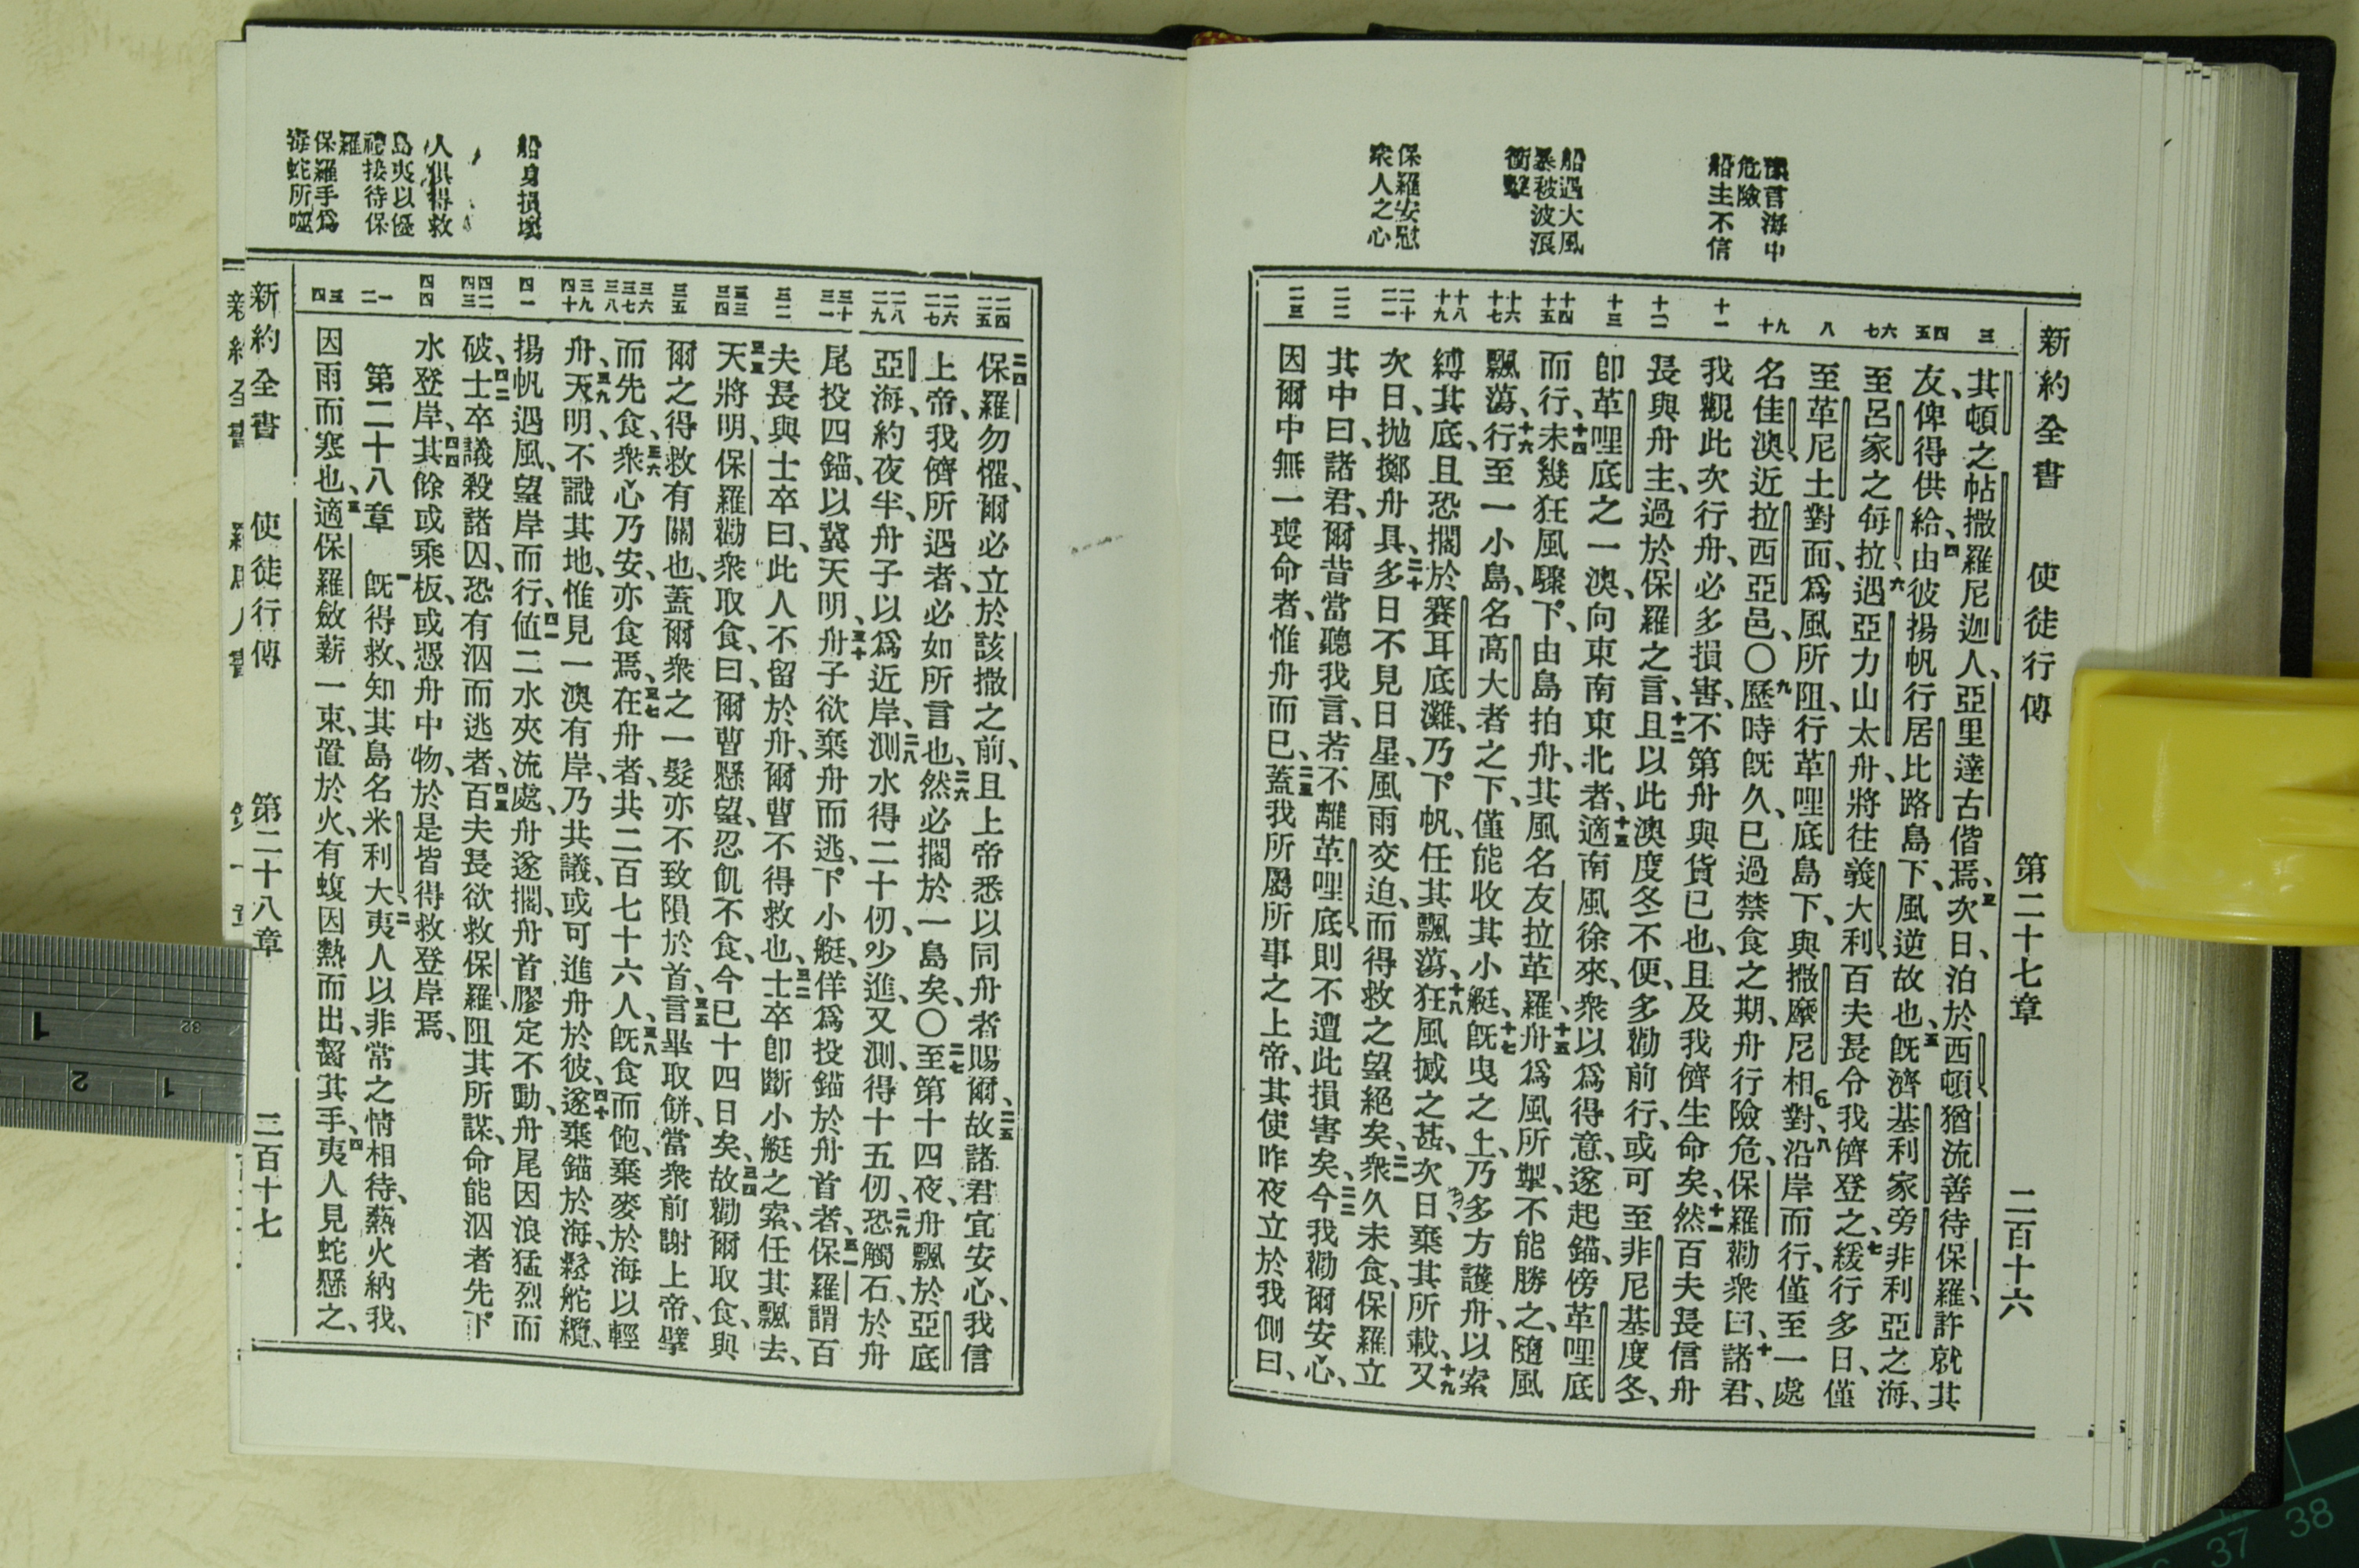 新約全書　使徒行傳　第二十七章　二百十六
海中
危險
船主不信
船遇大風
暴被波浪
衝擊
保羅安慰
衆人之心
三
四
五
六
七
八
九
十
十一
十二
十三
十四
十五
十六
十七
十八
十九
二十
二一
二二
二三
其頓之帖撒羅尼迦人、亞里達古偕焉、三次日、泊於西頓、猶流善待保羅、許就其
友、俾得供給、四由彼揚帆、行居比路島下、風逆故也、五旣濟基利家旁非利亞之海、
至呂家之每拉、六遇亞力山太舟、將往義大利、百夫長令我儕登之、七緩行多日、僅
至革尼土對面、爲風所阻、行革哩底島下、與撒摩尼相對、八沿岸而行、僅至一處
名佳澳、近拉西亞邑、○九歷時旣久、已過禁食之期、舟行險危、保羅勸衆曰、十諸君、
我觀此次行舟、必多損害、不第舟與貨已也、且及我儕生命矣、十一然百夫長信舟
長與舟主、過於保羅之言、十二且以此澳度冬不便、多勸前行、或可至非尼基度冬、
卽革哩底之一澳、向東南東北者、十三適南風徐來、衆以爲得意、遂起錨、傍革哩底
而行、十四未幾狂風驟下、由島拍舟、其風名友拉革羅、十五舟爲風所掣、不能勝之、隨風
飄蕩、十六行至一小島、名高大者之下、僅能收其小艇、十七旣曳之上、乃多方護舟、以索
縛其底、且恐擱於賽耳底灘、乃下帆、任其飄蕩、十八狂風撼之甚、次日、棄其所載、十九又
次日、拋擲舟具、二十多日不見日星、風雨交迫、而得救之望絕矣、二一衆久未食、保羅立
其中曰、諸君、爾昔當聽我言、若不離革哩底、則不遭此損害矣、二二今我勸爾安心、
因爾中無一喪命者、惟舟而已、二三蓋我所屬所事之上帝、其使昨夜立於我側曰、
船身損壞
人俱得救
島夷以優
禮接待保
羅
保羅手爲
毒蛇所噬
二四
二五
二六
二七
二八
二九
三十
三一
三二
三三
三四
三五
三六
三七
三八
三九
四十
四一
四二
四三
四四
一
二
三
四
二四保羅勿懼、爾必立於該撒之前、且上帝悉以同舟者賜爾、二五故諸君宜安心、我信
上帝、我儕所遇者、必如所言也、二六然必擱於一島矣、○二七至第十四夜、舟飄於亞底
亞海、約夜半、舟子以爲近岸、二八測水得二十仞、少進、又測、得十五仞、二九恐觸石、於舟
尾投四錨、以冀天明、三十舟子欲棄舟而逃、下小艇、佯爲投錨於舟首者、三一保羅謂百
夫長與士卒曰、此人不留於舟、爾曹不得救也、三二士卒卽斷小艇之索、任其飄去、
三三天將明、保羅勸衆取食、曰、爾曹懸望、忍飢不食、今已十四日矣、三四故勸爾取食、與
爾之得救有關也、蓋爾衆之一髮亦不致隕於首、三五言畢取餅、當衆前謝上帝、擘
而先食、三六衆心乃安、亦食焉、三七在舟者、共二百七十六人、三八旣食而飽、棄麥於海以輕
舟、三九天明、不識其地、惟見一澳有岸、乃共議、或可進舟於彼、四十遂棄錨於海、鬆舵纜、
揚帆遇風、望岸而行、四一値二水夾流處、舟遂擱、舟首膠定不動、舟尾因浪猛烈而
破、四二士卒議殺諸囚、恐有泅而逃者、四三百夫長欲救保羅、阻其所謀、命能泅者先下
水登岸、四四其餘或乘板、或憑舟中物、於是皆得救登岸焉、
第二十八章　一旣得救、知其島名米利大、二夷人以非常之情相待、爇火納我、
因雨而寒也、三適保羅斂薪一束、置於火、有蝮因熱而出、齧其手、四夷人見蛇懸之、
新約全書　使徒行傳　第二十八章　二百十七